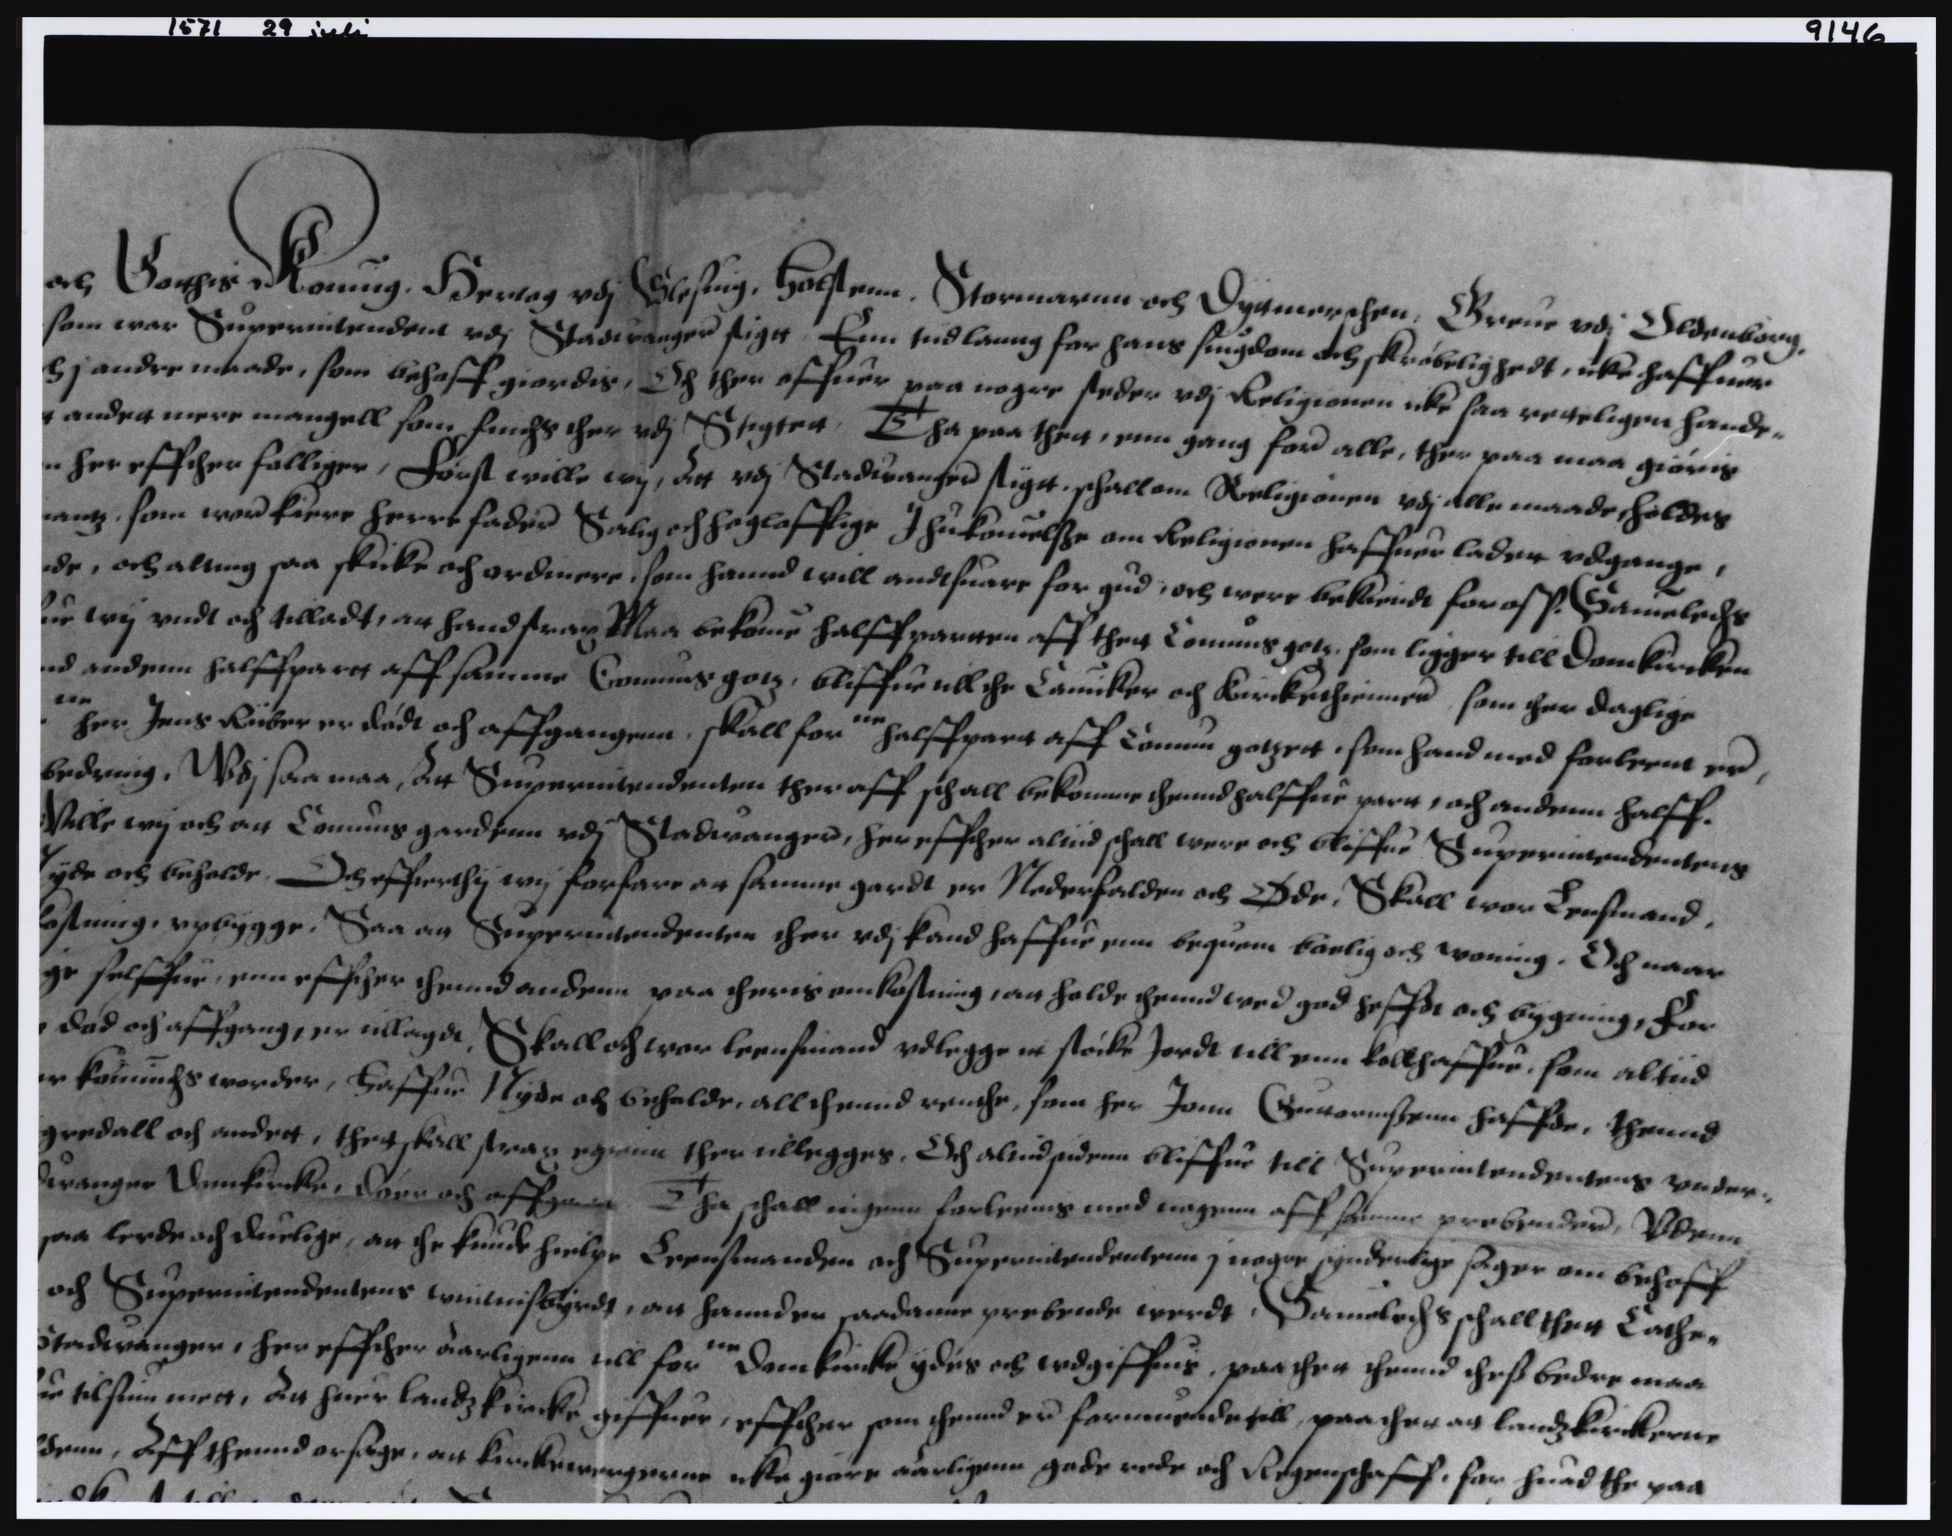 1571 29 juli 9146
och Gotthis Konning, Hertog vdj Slesuig, Holstenn, Stormarnn och Dyttmerschen, Greue vdj Oldenborg,
som war Superintendent vdj Stadwanger stigtt, Enn tid lanng for hans siugdom och skrøbelighedt, icke haffuer
j andre maade, som behoff giordis, Och ther offuer paa nogre steder vdj Religionen icke saa retteligen hande-
andett mere mangell som findis ther vdj Stigtett. Tha paa thett, enn gang for alle, ther paa maa giøris
her effther følliger, Først wille wij, Att vdj Stadwanger stigtt schall om Religionen vdj alle maade holdes
som wor kiere herre fader Salig och høglofflige Ihukommelsse om Religionen haffuer ladett vdgange,
och alting saa skicke och ordinere, som hannd will andtsuare for gud, och were bekiendt for oss. Sammeledis
wij vndt och tilladt, att hand strax Maa bekomme halffparten aff thett Communs gotz, som ligger till Domkircken
andenn halffpartt aff samme Communs gotz, bliffue till the Cannicker och Kirckethienner som ther daglige
ne her Jens Riber er dødt och affgangenn, skall for ne halffpartt aff Commun gotzett, som hand med forleent er,
bedring, Vdj saa maa, Att Superintendenten ther aff schall bekomme thennd halffue partt, och andenn halff-
Wille wij och att Communs gardenn vdj Stadwanger, her effther altid schall were och bliffue Superintendentens
Nyde och beholde. Och effterthij wij forfare att samme gardt er Nederfalden och Øde, Skall wor Lensmand,
opbygge, Saa att Superintendenten ther vdj kand haffue enn bequem bolig och woning. Och naar
selffue, enn effther thennd andenn paa theris omkostning, att holde thennd wed god heffdt och bygning, For
død och affgang, er tillagdt, Skall och wor leensmand vdlegge it støcke Jordt till enn kallhaffue, som altiid
worder, Haffue Nyde och beholde, all thennd renthe, som her Jonn Guttormssenn haffde, thennd
gredall och andett, thett skall strax igienn ther tillegges, Och altid sidenn bliffue till Superintendentens vnder-
Domkircke, døer och affgaar Tha schall ingenn forleenis med nogenn aff samme prebender, Vdenn
saa lerde och duelige, att the kunde hielpe Leensmanden och Superintendentenn j nogre synderlige sager om behoff
och Superintendentens wintnisbyrdt, att hannd er saadanne prebende werdt, Sammeledis schall thett Cathe-
Stadwanger, her effther aarligenn till for ne Domkircke ydes och wdgiffuis, paa thett thennd thess bedre maa
Att huer landzkircke giffuer, effther som thennd er formuende till, paa thett att landzkirckerne
Aff thennd orsage, att kirckewergerne icke giøre aarligenn gode rede och Regenschaff, for huad the paa